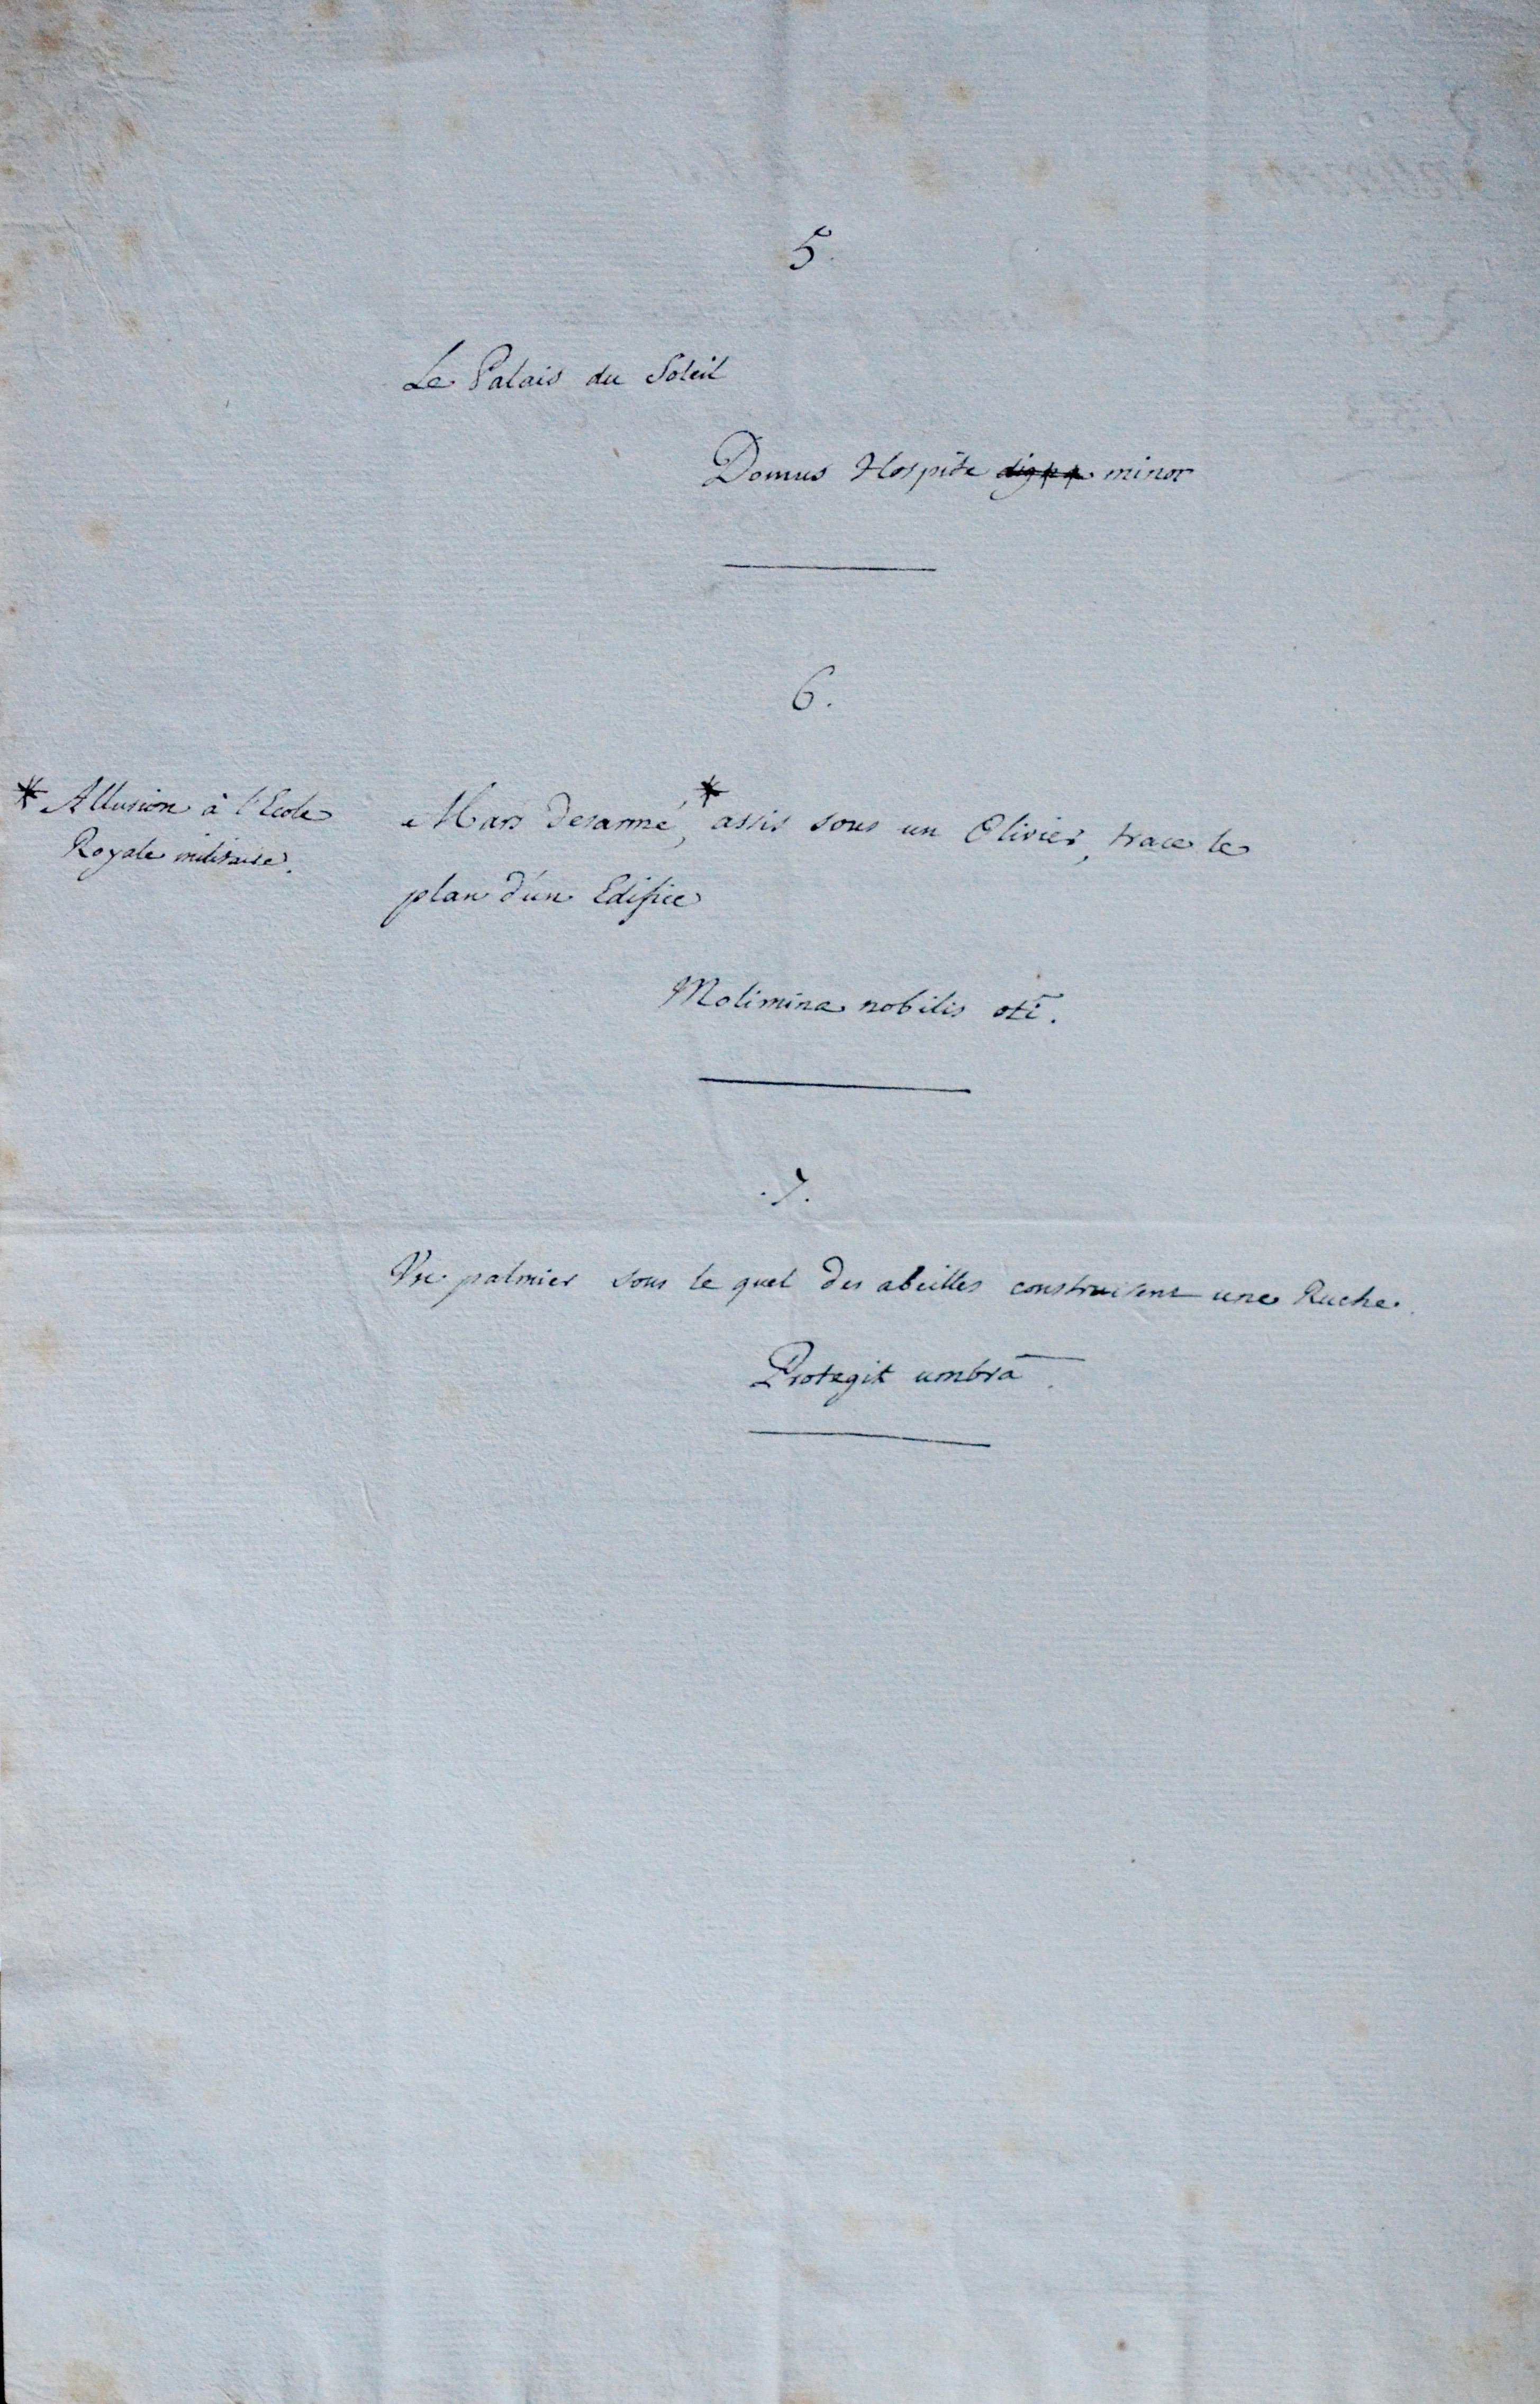 5.
Le Palais du Soleil
Domus Hospite digna minor
6.
* Allusion à l'Ecole
Royale militaire.
Mars desarmé,* assis sous un Olivier, trace le
plan d'un Edifice
Molimina nobilis otī.
.7.
Un palmier sous le quel des abeilles construisent une Ruche.
Protegit umbrā.